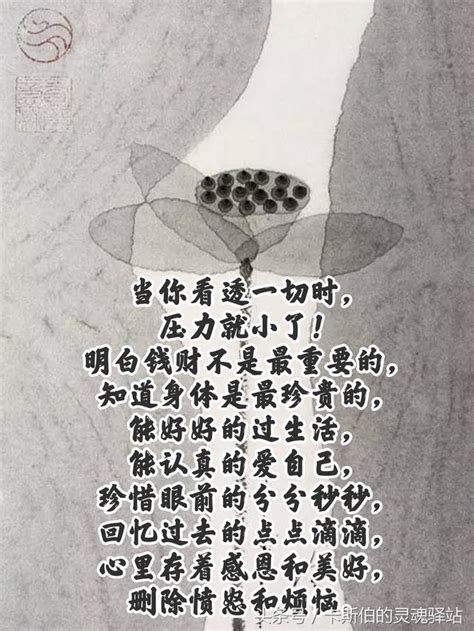 当你看透一切时，
压力就小了！
明白钱财不是最重要的，
知道身体是最珍贵的，
能好好的过生活，
能认真的爱自己，
珍惜眼前的分分秒秒，
回忆过去的点点滴滴，
心里存着感恩和美好，
删除愤怒和烦恼。
头条号／卡斯伯的灵魂驿站